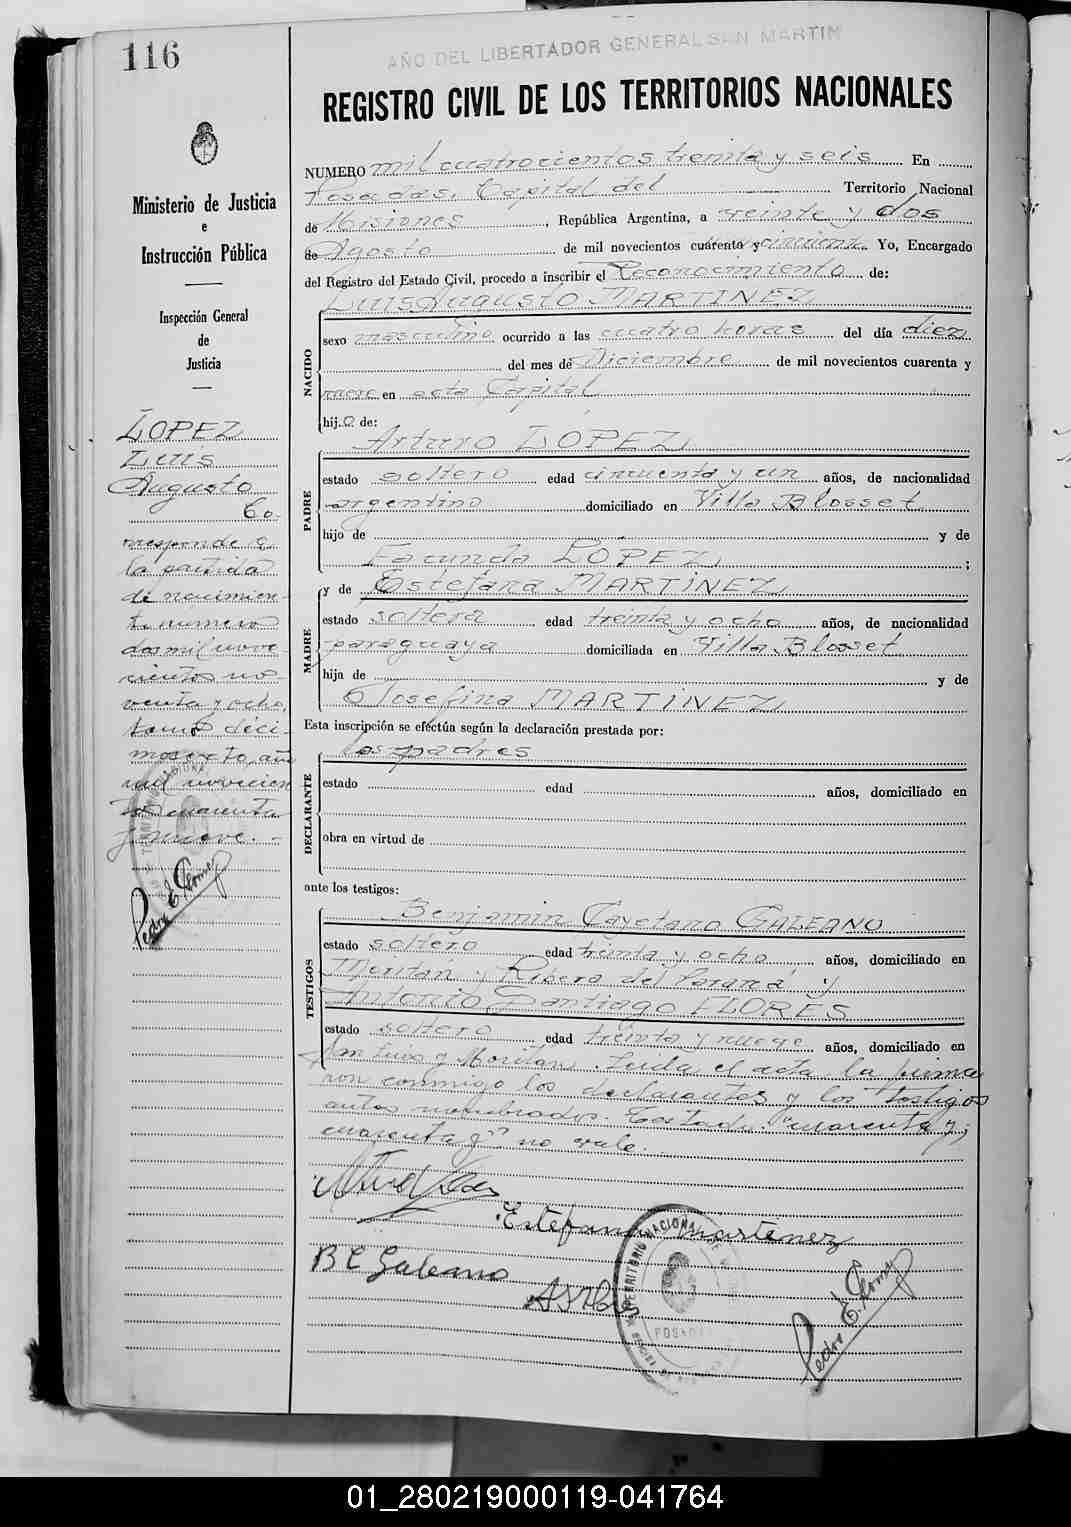 116
AÑO DEL LIBERTADOR GENERAL SAN MARTIN
REGISTRO CIVIL DE LOS TERRITORIOS NACIONALES
Ministerio de Justicia
e
Instrucción Pública
Inspección General
de
Justicia
LOPEZ
Luis
Augusto
Co-
rresponde a
la partida
de nacimien-
to numero
dos mil nove-
cientos no-
venta y ocho,
tomo déci-
mosexto, año
mil novecien
tos cuarenta
y nueve. -
Pedro E. Gomez
NUMERO mil cuatrocientos treinta y seis En
Posadas, Capital del Territorio Nacional
de Misiones, República Argentina, a veinte y dos
de Agosto de mil novecientos cuarenta y cincuenta Yo, Encargado
del Registro del Estado Civil, procedo a inscribir el Reconocimiento de:
Luis Augusto MARTINEZ
NACIDO
sexo masculino ocurrido a las cuatro horas del día diez
del mes de Diciembre de mil novecientos cuarenta y
nueve en esta Capital
hij.o de:
Arturo LOPEZ
PADRE
estado soltero edad cincuenta y un años, de nacionalidad
argentino domiciliado en Villa Blosset
hijo de y de
Facunda LOPEZ ;
y de Estefana MARTINEZ
MADRE
estado soltera edad treinta y ocho años, de nacionalidad
paraguaya domiciliada en Villa Blosset
hija de y de
Josefina MARTINEZ
Esta inscripción se efectúa según la declaración prestada por:
los padres
DECLARANTE
estado edad años, domiciliado en
obra en virtud de
ante los testigos:
Benjamin Cayetano GALEANO
TESTIGOS
estado soltero edad treinta y ocho años, domiciliado en
Moritán y Ribera del Paraná y
Antonio Santiago FLORES
estado soltero edad treinta y nueve años, domiciliado en
San Luis y Moritan. Leida el acta, la firma
ron conmigo los declarantes y los testigos
antes nombrados. Testado: "cuarenta y;
cuarenta y" no vale.
Estefana Martinez
B C Galeano
A S Flores
TERRITORIO NACIONAL DE
POSADAS
Pedro E. Gomez
01_280219000119-041764